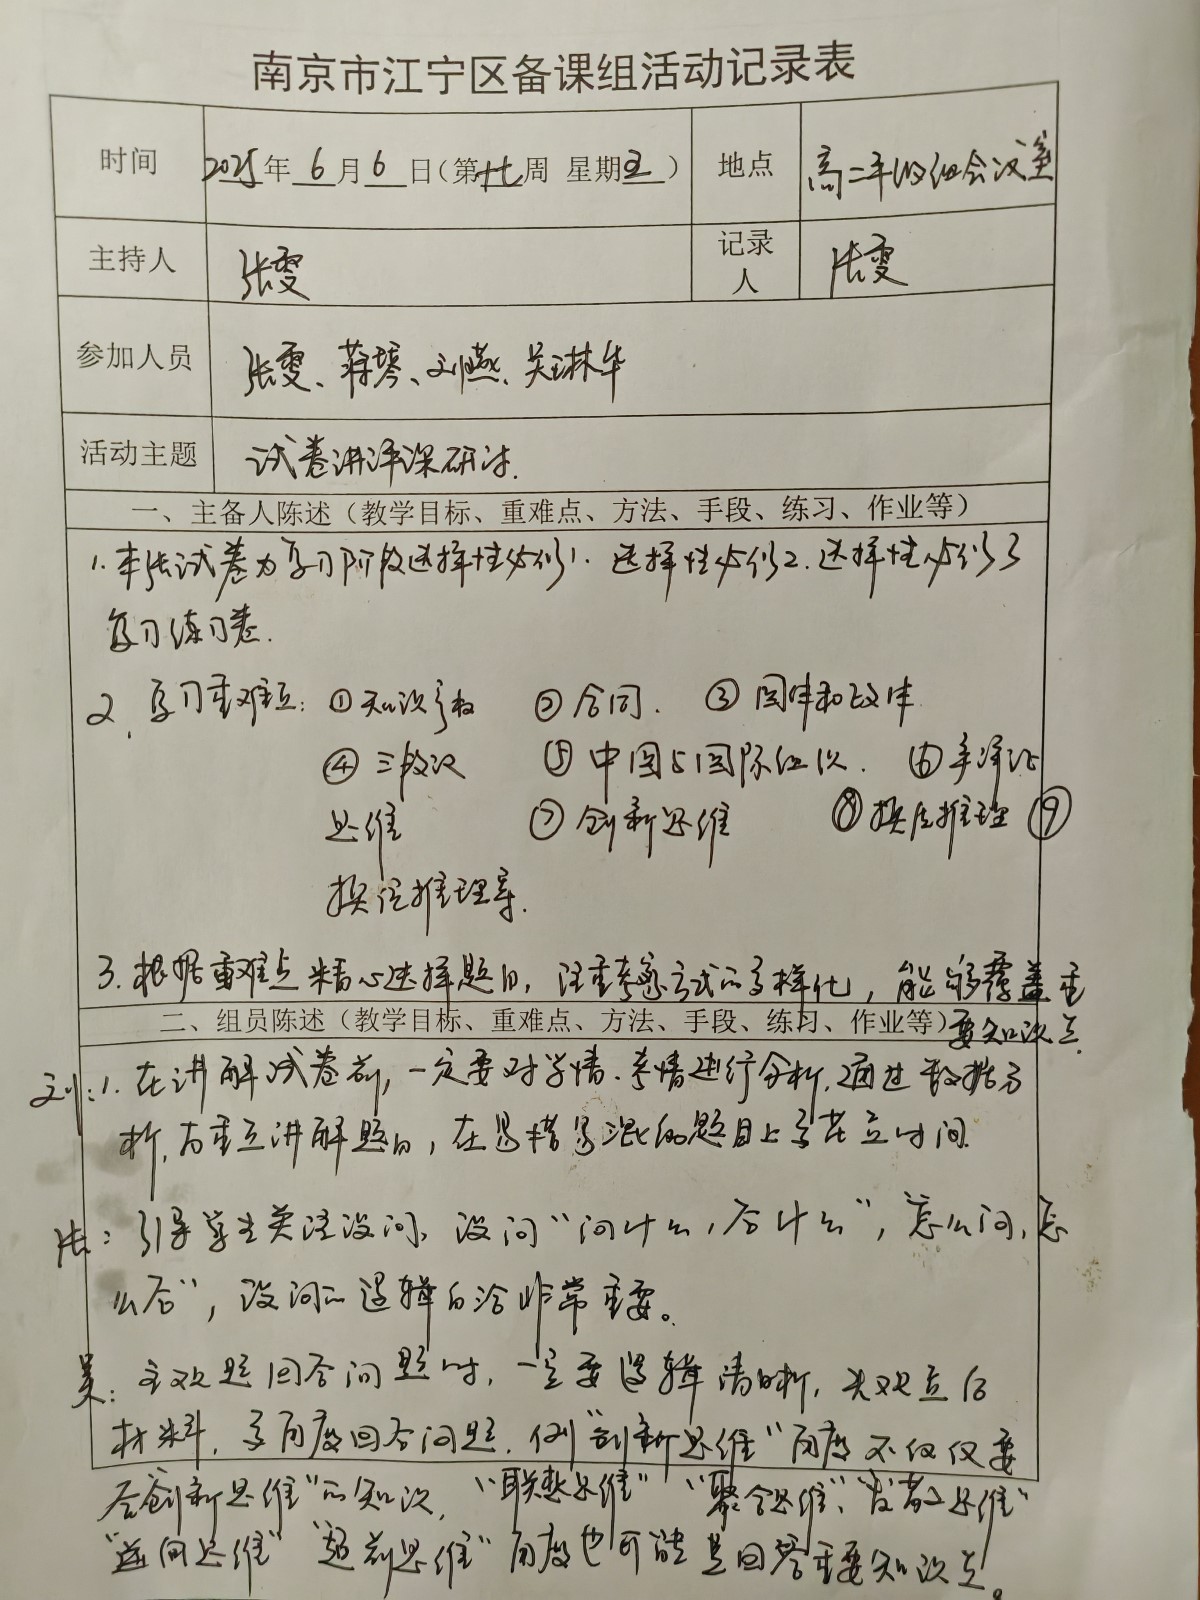 南京市江宁区备课组活动记录表
时间 2025年6月6日(第十七周 星期五) 地点 高二年级组会议室
主持人 张雯 记录人 张雯
参加人员 张雯、蒋琴、刘燕、吴琳华
活动主题 试卷讲评课研讨.
一、主备人陈述(教学目标、重难点、方法、手段、练习、作业等)
1. 本张试卷为复习阶段选择性必修1. 选择性必修2. 选择性必修3
复习练习卷.
2. 复习重难点: ①知识产权 ②合同. ③国体和政体
④三段论 ⑤中国与国际组织. ⑥辩证
思维 ⑦创新思维 ⑧换质推理 ⑨
换位推理等.
3. 根据重难点精心选择题目, 注重考察方式的多样化, 能够覆盖重
要知识点.
二、组员陈述(教学目标、重难点、方法、手段、练习、作业等)
刘: 1. 在讲解试卷前, 一定要对学情、考情进行分析. 通过数据分
析, 有重点讲解题目, 在易错易混的题目上多花点时间.
张: 引导学生关注设问, 设问“问什么, 答什么”, “怎么问, 怎
么答”, 设问的逻辑自洽非常重要。
吴: 主观题回答问题时, 一定要逻辑清晰, 先观点后
材料. 多角度回答问题. 例“创新思维”角度不仅仅要
答“创新思维”的知识, “联想思维” “聚合思维”、“发散思维”
“逆向思维” “超前思维”角度也可能是回答重要知识点。